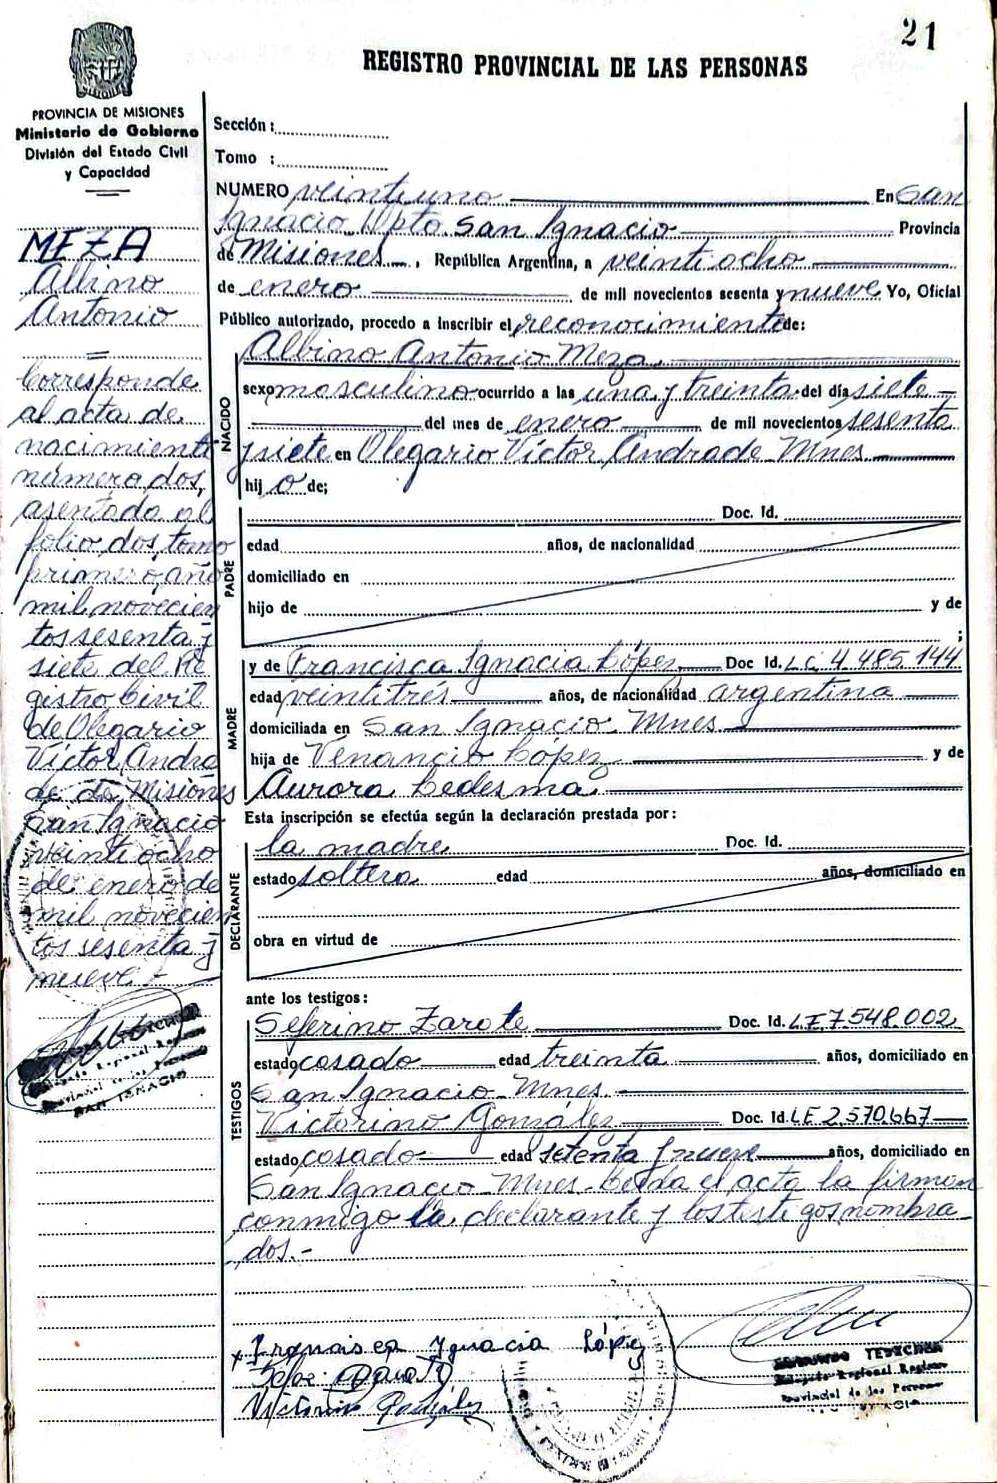 21
REGISTRO PROVINCIAL DE LAS PERSONAS
PROVINCIA DE MISIONES
Ministerio de Gobierno
División del Estado Civil
y Capacidad
MEZA
Albino
Antonio
=
Corresponde
al acta de
nacimiento
número dos,
asentada al
folio dos, tomo
primero, año
mil novecien
tos sesenta y
siete del Re
gistro Civil
de Olegario
Víctor Andra
de Misiones
San Ignacio
veintiocho
de enero de
mil novecien
tos sesenta y
nueve.-
SAN IGNACIO
Sección:
Tomo :
NUMERO veintiuno En San
Ignacio Dpto San Ignacio Provincia
de Misiones, República Argentina, a veintiocho
de enero de mil novecientos sesenta y nueve Yo, Oficial
Público autorizado, procedo a inscribir el reconocimiento de:
NACIDO
Albino Antonio Meza
sexo masculino ocurrido a las una y treinta del día siete
del mes de enero de mil novecientos sesenta
y siete en Olegario Víctor Andrade Mnes
hijo de;
PADRE
Doc. Id.
edad años, de nacionalidad
domiciliado en
hijo de y de
;
MADRE
y de Francisca Ignacia López Doc Id. L.C. 4.485.144
edad veintitrés años, de nacionalidad argentina
domiciliada en San Ignacio Mnes
hija de Venancio López y de
Aurora Ledesma
Esta inscripción se efectúa según la declaración prestada por:
DECLARANTE
la madre Doc. Id.
estado soltera edad años, domiciliado en
obra en virtud de
ante los testigos:
TESTIGOS
Seferino Zarate Doc. Id. L.E 7.548.002
estado casado edad treinta años, domiciliado en
San Ignacio Mnes.
Victorino González Doc. Id. L.E 2.570.667
estado casado edad setenta y nueve años, domiciliado en
San Ignacio Mnes. Leída el acta la firman
conmigo la declarante y los testigos nombra
dos.-
x Fransisca Ygnacia López
Victorino González
TEDESCHI
Delegado Regional Registro
Provincial de las Personas